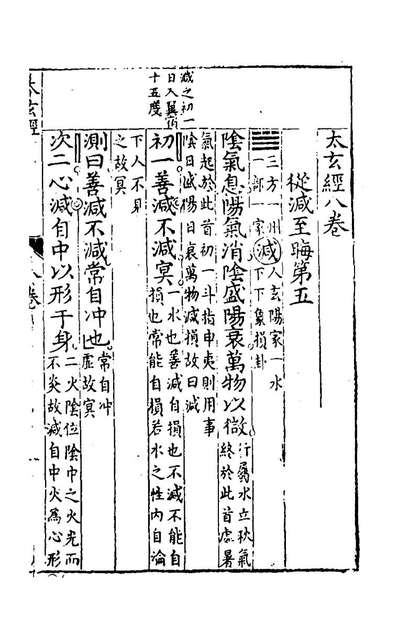 太玄經八卷
從減至晦第五
三方一州
一部一家
減
人玄陽家一水
下下象損卦
陰氣息陽氣消陰盛陽衰萬物以微
行屬水立秋氣
終於此首處暑
氣起於此首初一斗指申夷則用事
陰日盛陽日衰萬物減損故曰減
初一善減不減冥
一水也善減自損也不減不能自
損也常能自損若水之性內自淪
下人不見
之故冥
測曰善減不減常自冲也
常自冲
虛故冥
次二心減自中以形于身
二火陰位陰中之火光而
不炎故減自中火爲心形
減之初一
日入翼宿
十五度
太玄經
八卷